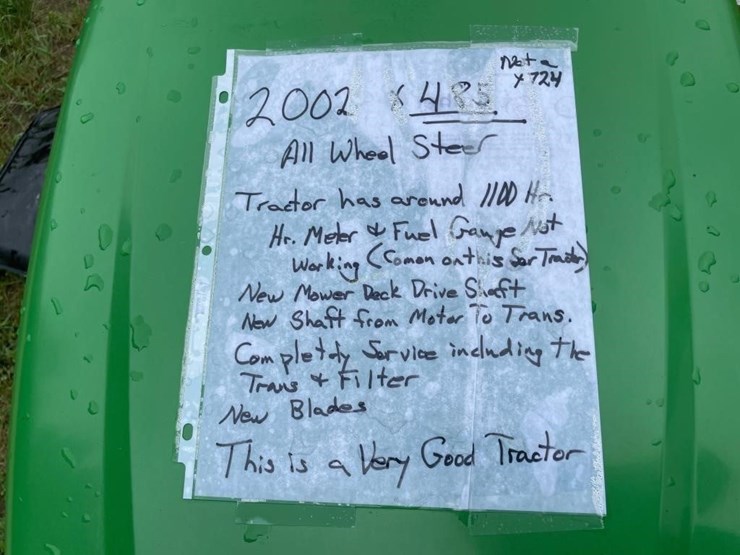 Not a
X 724
2002 X 485
All Wheel Steer
Tractor has around 1100 Hr.
Hr. Meter & Fuel Gauge Not
Working (Comon on this Ser Tractor)
New Mower Deck Drive Shaft
New Shaft from Motor To Trans.
Completdy Service including the
Trans & Filter
New Blades
This is a Very Good Tractor